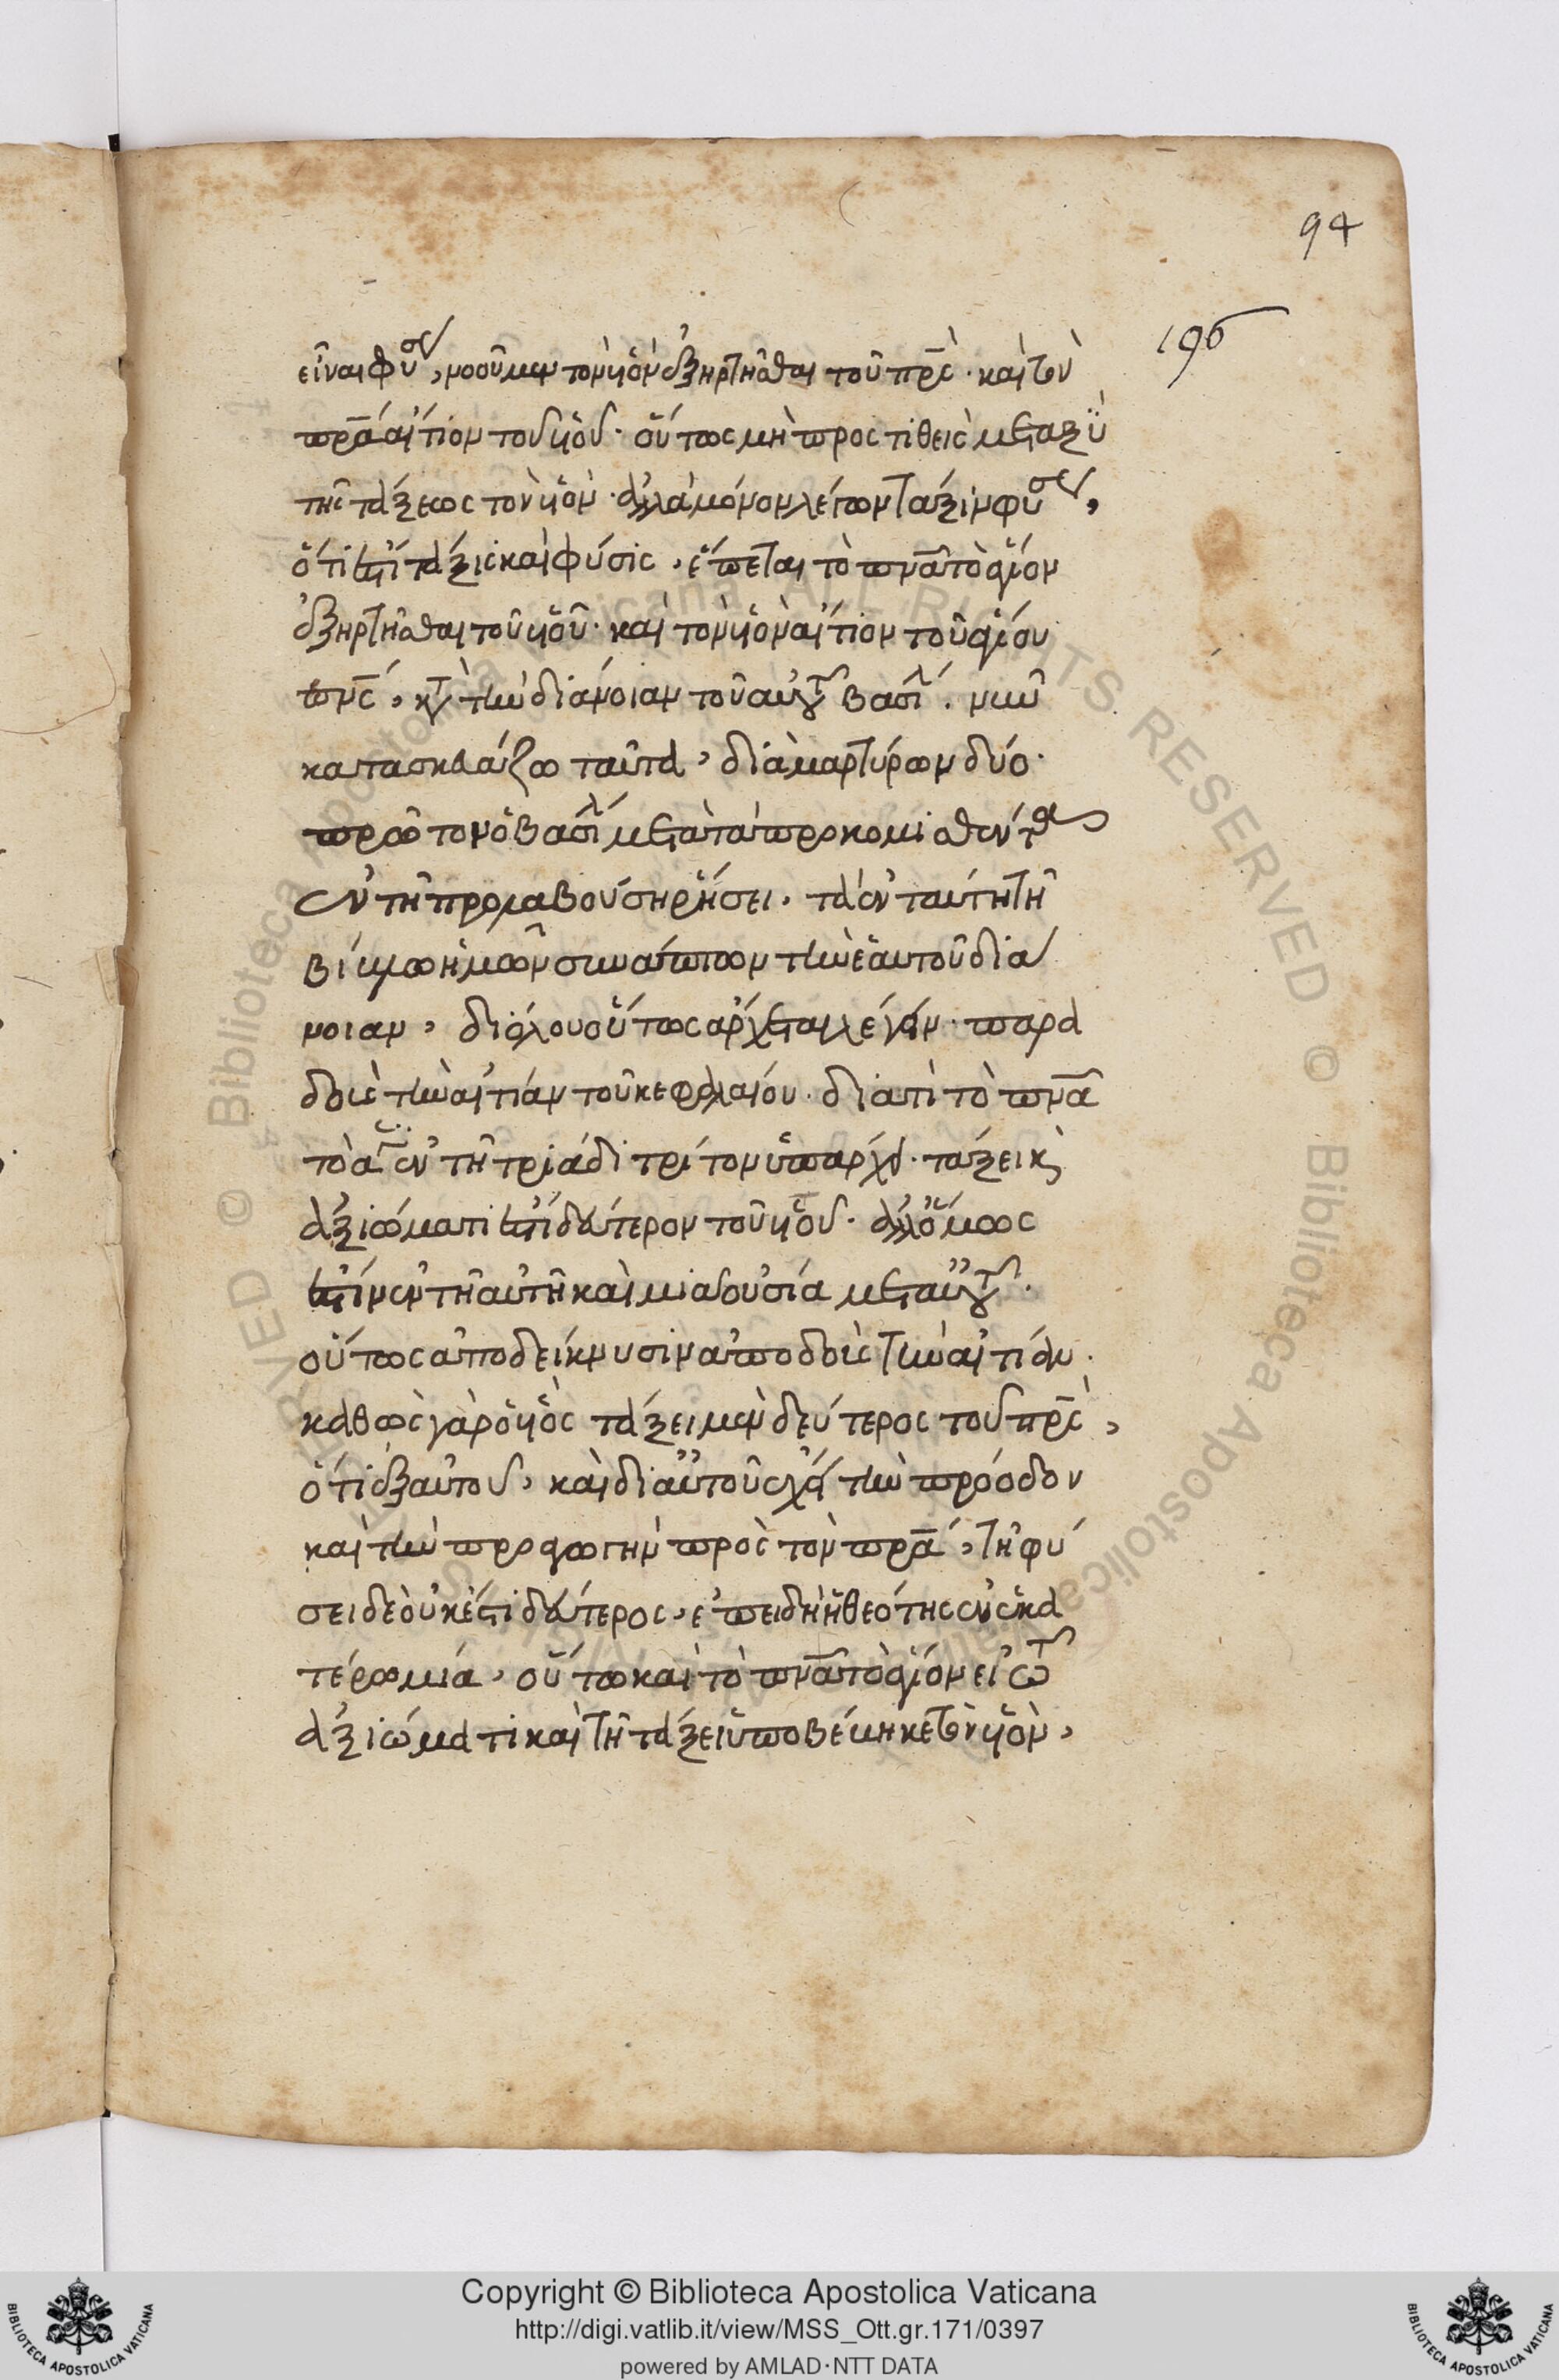 94
196
εἶναι φύσει, νοοῦμεν τὸν υἱὸν ἐξηρτῆσθαι τοῦ πρς. καὶ τὸν
πρα αἴτιον τοῦ υἱοῦ. οὕτως μὴ προστιθεὶς μεταξὺ
τῆς τάξεως τὸν υἱόν. ἀλλὰ μόνον λέγων τάξιν φύσει,
ὅτι ἐστὶ τάξις καὶ φύσις, ἕπεται τὸ πνα τὸ ἅγιον
ἐξηρτῆσθαι τοῦ υἱοῦ. καὶ τὸν υἱὸν αἴτιον τοῦ ἁγίου
πνς, κατὰ τὴν διάνοιαν τοῦ αὐτοῦ βασιλ. νῦν
κατασκευάζω ταῦτα, διὰ μαρτύρων δύο.
πρῶτον ὁ βασίλ μετὰ τὰ προκομισθέντα
ἐν τῇ προλαβούσῃ ῥήσει, τὰ ἐν ταύτῃ τῇ
βίβλω ἡμῶν συνάπτων τὴν ἑαυτοῦ διά
νοιαν, δι' ὅλου οὕτως ἄρχεται λέγειν. παρα
δοὺς τὴν αἰτίαν τοῦ κεφαλαίου. διατὶ τὸ πνα
τὸ ἅγιον ἐν τῇ τριάδι τρίτον ὑπάρχει. τάξει κ
ἀξιώματι ἐστὶ δεύτερον τοῦ υἱοῦ. ἀλλ' ὅμως
ἐστὶν ἐν τῇ αὐτῇ καὶ μιᾶ οὐσία μετ' αὐτοῦ.
οὕτως ἀποδείκνυσιν ἀποδοὺς τὴν αἰτίαν.
καθὼς γὰρ ὁ υἱὸς τάξει μὲν δεύτερος τοῦ πρς,
ὅτι ἐξ αὐτοῦ, καὶ δι' αὐτοῦ ἔχει τὴν πρόοδον
καὶ τὴν προσαγωγὴν πρὸς τὸν πρα, τῇ φύ
σει δὲ οὐκέτι δεύτερος, ἐπειδὴ ἡ θεότης ἐν ἑκα
τέρω μία, οὕτω καὶ τὸ πνα τὸ ἅγιον εἰ τῶ
ἀξιώματι καὶ τῇ τάξει ὑποβέβηκε τὸν υἱὸν,
Copyright © Biblioteca Apostolica Vaticana
http://digi.vatlib.it/view/MSS_Ott.gr.171/0397
powered by AMLAD·NTT DATA